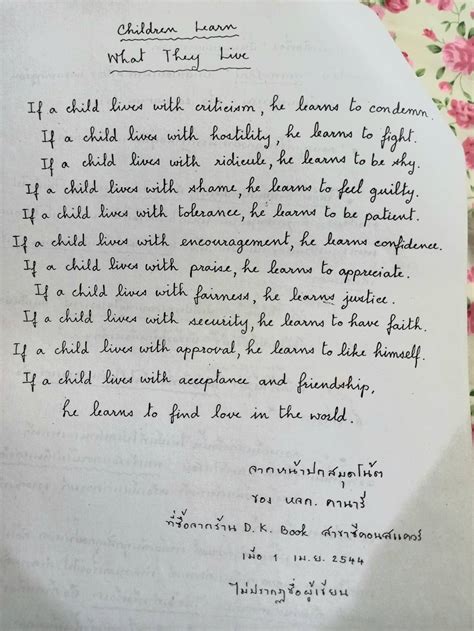 Children Learn
What They Live
If a child lives with criticism, he learns to condemn.
If a child lives with hostility, he learns to fight.
If a child lives with ridicule, he learns to be shy.
If a child lives with shame, he learns to feel guilty.
If a child lives with tolerance, he learns to be patient.
If a child lives with encouragement, he learns confidence.
If a child lives with praise, he learns to appreciate.
If a child lives with fairness, he learns justice.
If a child lives with security, he learns to have faith.
If a child lives with approval, he learns to like himself.
If a child lives with acceptance and friendship,
he learns to find love in the world.
จากหน้าปกสมุดโน้ต
ของ หลก. คานารี
ที่ซื้อจากร้าน D.K. Book สาขาซีคอนสแควร์
เมื่อ 1 เม.ย. 2544
ไม่ปรากฏชื่อผู้เขียน